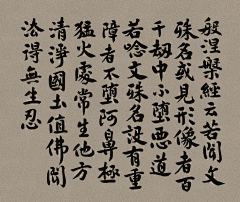 般涅槃經云若聞文
殊名或見形像者百
千劫中不墮惡道
若唸文殊名設有重
障者不墮阿鼻極
猛火處常生他方
清淨國土值佛聞
法得無生忍